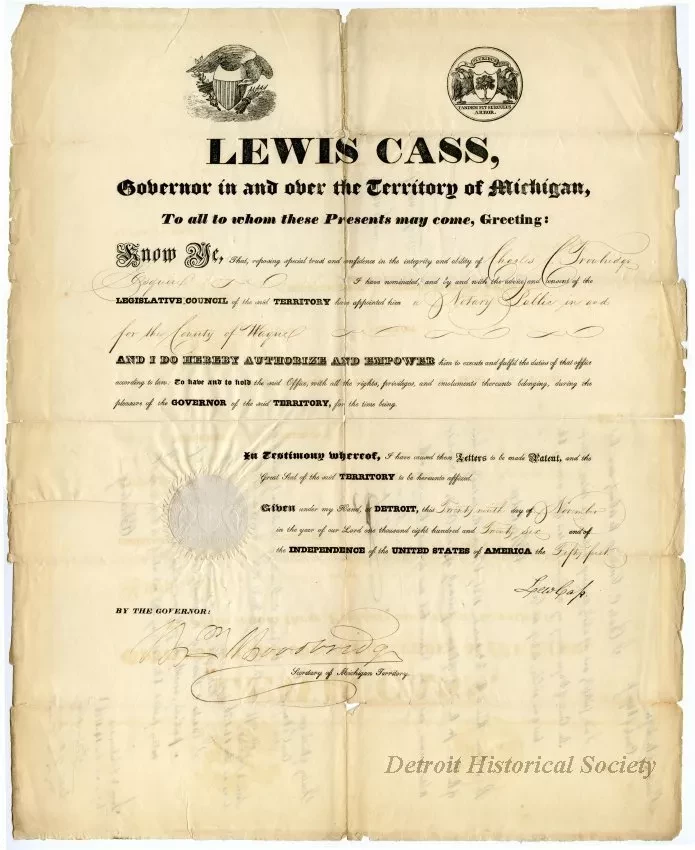 E PLURIBUS UNUM
TANDEM FIT SURCULUS
ARBOR.
LEWIS CASS,
Governor in and over the Territory of Michigan,
To all to whom these Presents may come, Greeting:
Know Ye, That, reposing special trust and confidence in the integrity and ability of Charles C Trowbridge
Esquire I have nominated, and by and with the advice and consent of the
LEGISLATIVE COUNCIL of the said TERRITORY have appointed him a Notary Public in and
for the County of Wayne
AND I DO HEREBY AUTHORIZE AND EMPOWER him to execute and fulfil the duties of that office
according to law. To have and to hold the said Office, with all the rights, privileges, and emoluments thereunto belonging, during the
pleasure of the GOVERNOR of the said TERRITORY, for the time being.
In Testimony whereof, I have caused these Letters to be made Patent, and the
Great Seal of the said TERRITORY to be hereunto affixed.
Given under my Hand, at DETROIT, this Twenty ninth day of November
in the year of our Lord one thousand eight hundred and Twenty six and of
the INDEPENDENCE of the UNITED STATES of AMERICA the Fifty first
Lew Cass
BY THE GOVERNOR:
Wm Woodbridge
Secretary of Michigan Territory.
Detroit Historical Society